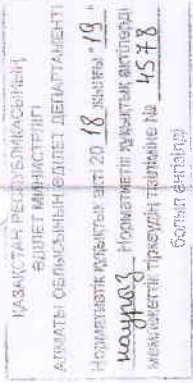 ҚАЗАҚСТАН РЕСПУБЛИКАСЫНЫҢ
ӘДІЛЕТ МИНИСТРЛІГІ
АЛМАТЫ ОБЛЫСЫНЫҢ ӘДІЛЕТ ДЕПАРТАМЕНТІ
Нормативтік құқықтық акті 20 18 жылғы "19"
наурыз Нормативтік құқықтық актілерді
мемлекеттік тіркеудің тізіліміне № 4578
болып енгізілді